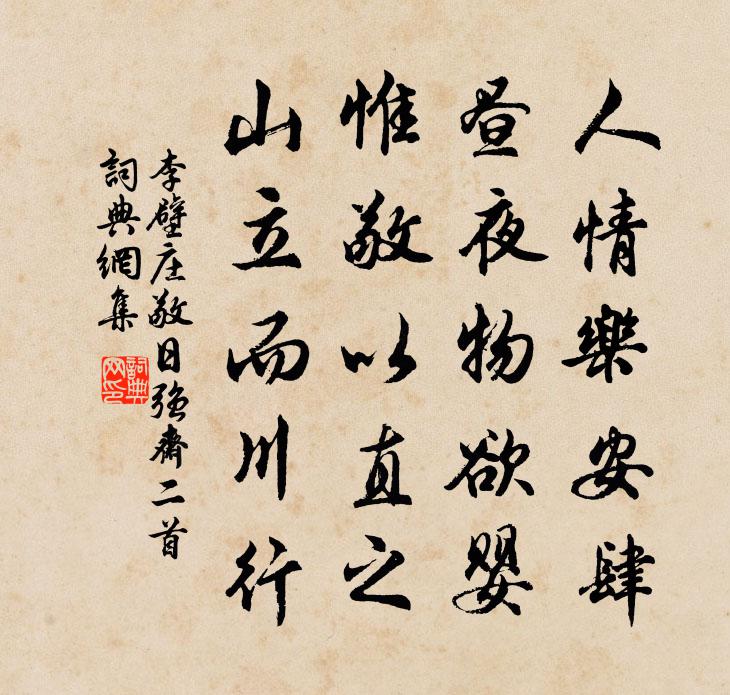 人情樂安肆
晝夜物欲嬰
惟敬以直之
山立而川行
李壁庄敬日強齋二首
詞典網集
詞典网印